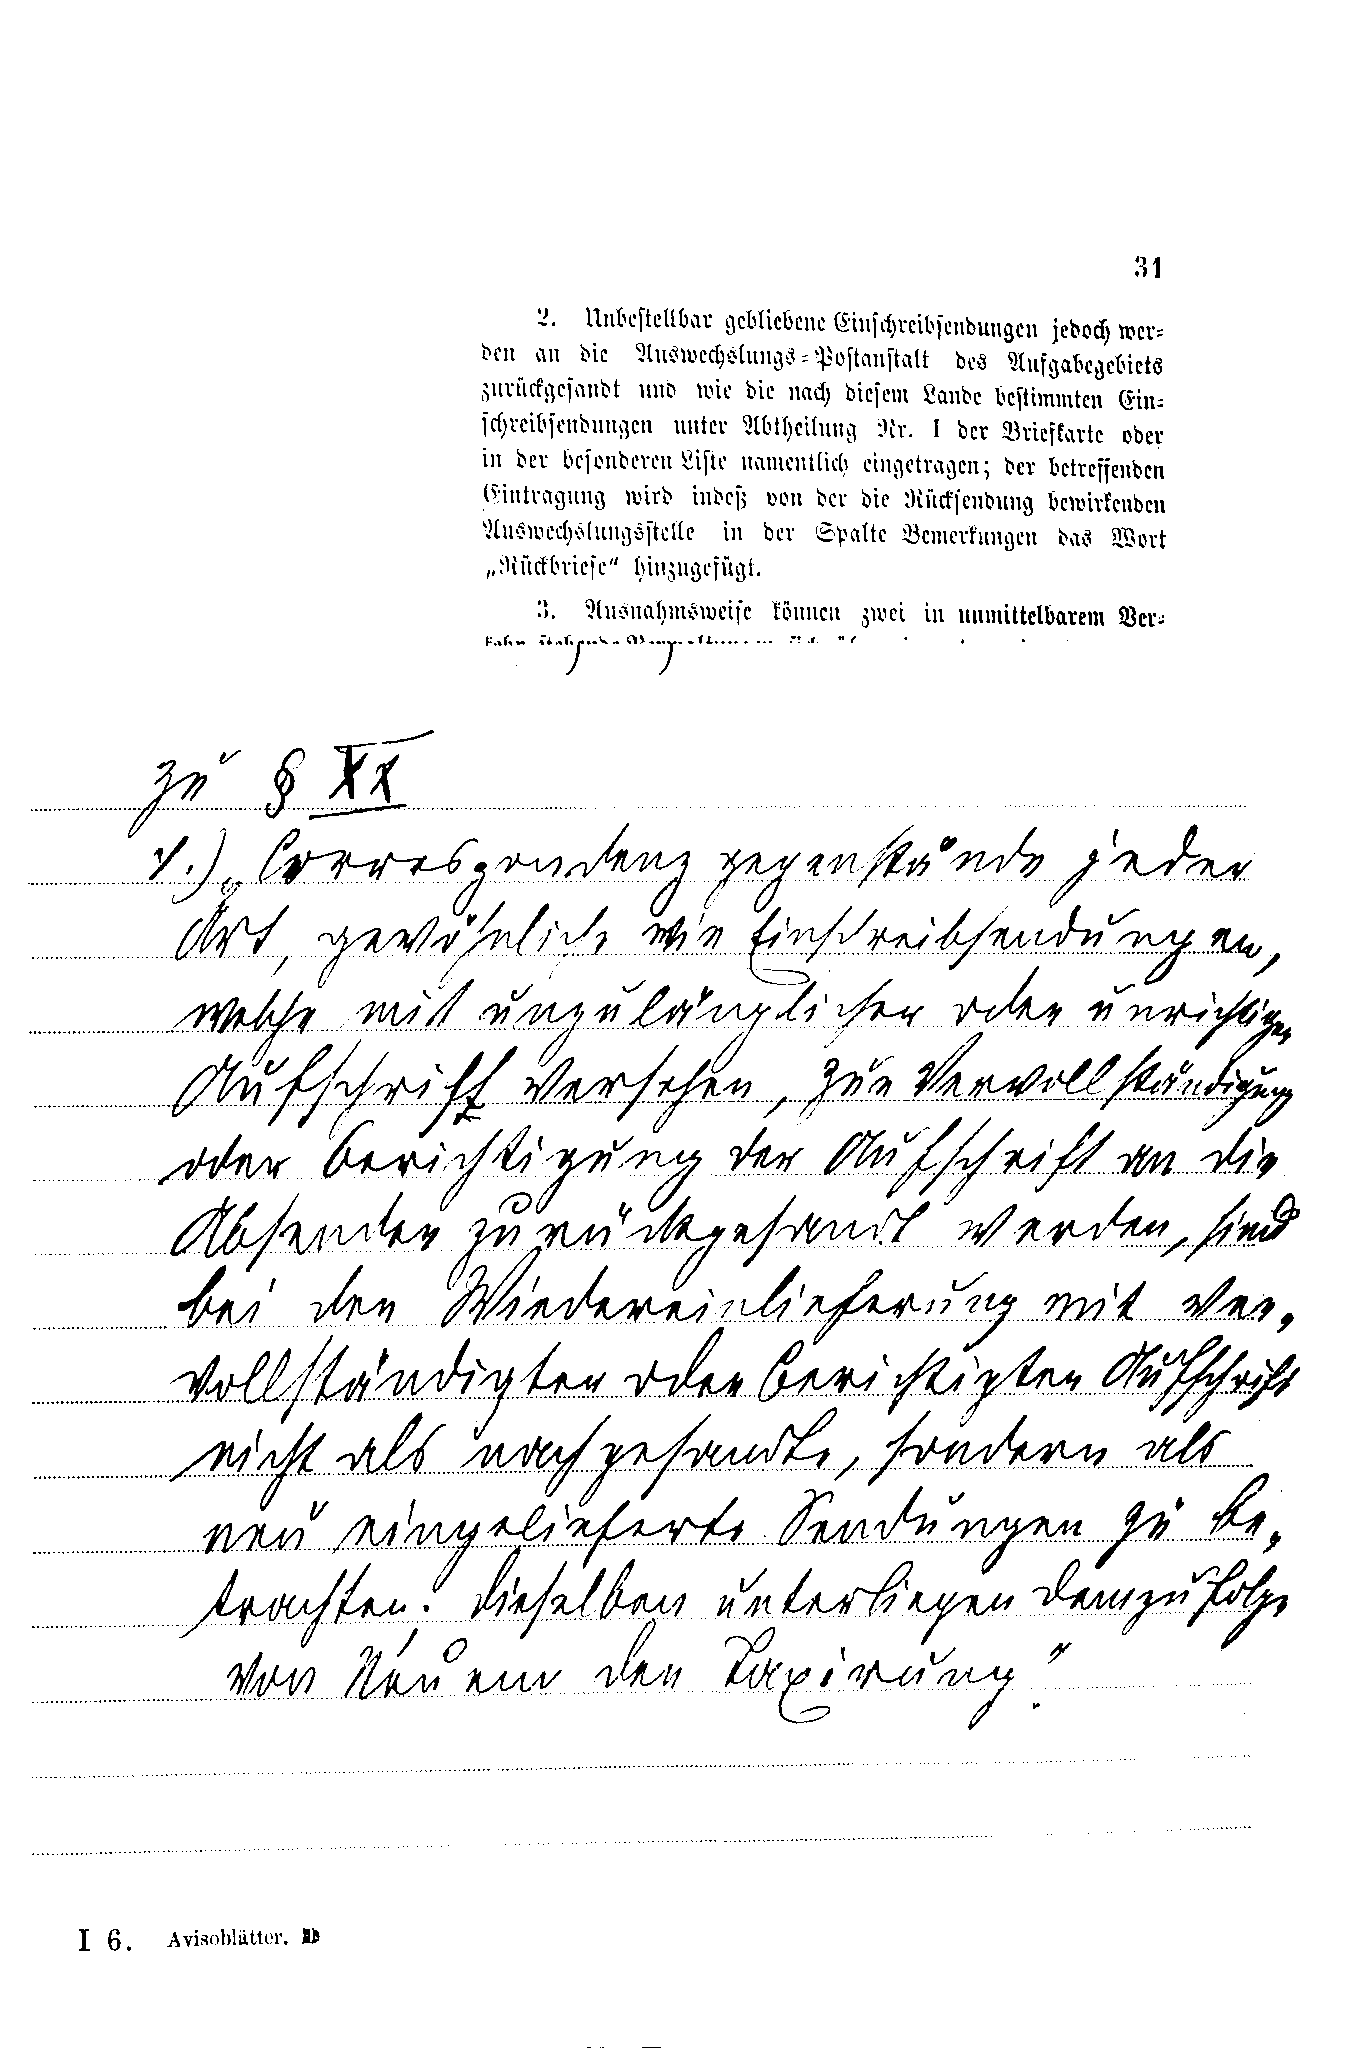 31
2. Unbestellbar gebliebene Einschreibsendungen jedoch wer=
den an die Auswechslungs=Postanstalt des Aufgabegebiets
zurückgesandt und wie die nach diesem Lande bestimmten Ein=
schreibsendungen unter Abtheilung Nr. I der Briefkarte oder
in der besonderen Liste namentlich eingetragen; der betreffenden
Eintragung wird indeß von der die Rücksendung bewirkenden
Auswechslungsstelle in der Spalte Bemerkungen das Wort
„Rückbriefe“ hinzugefügt.
3. Ausnahmsweise können zwei in unmittelbarem Ver=
zu § XX
1.) „Correspondenzgegenstände jeder
Art, gewöhnliche wie Einschreibsendungen,
welche mit unzulänglicher oder unrichtiger
Aufschrift versehen, zur Vervollständigung
oder Berichtigung der Aufschrift an die
Absender zurückgesandt werden, sind
bei der Wiedereinlieferung mit ver„
vollständigter oder berichtigter Aufschrift
nicht als nachgesandte, sondern als
neu eingelieferte Sendungen zu be„
trachten; dieselben unterliegen demzufolge
von Neuem der Taxirung“.
I 6. Avisoblätter. D